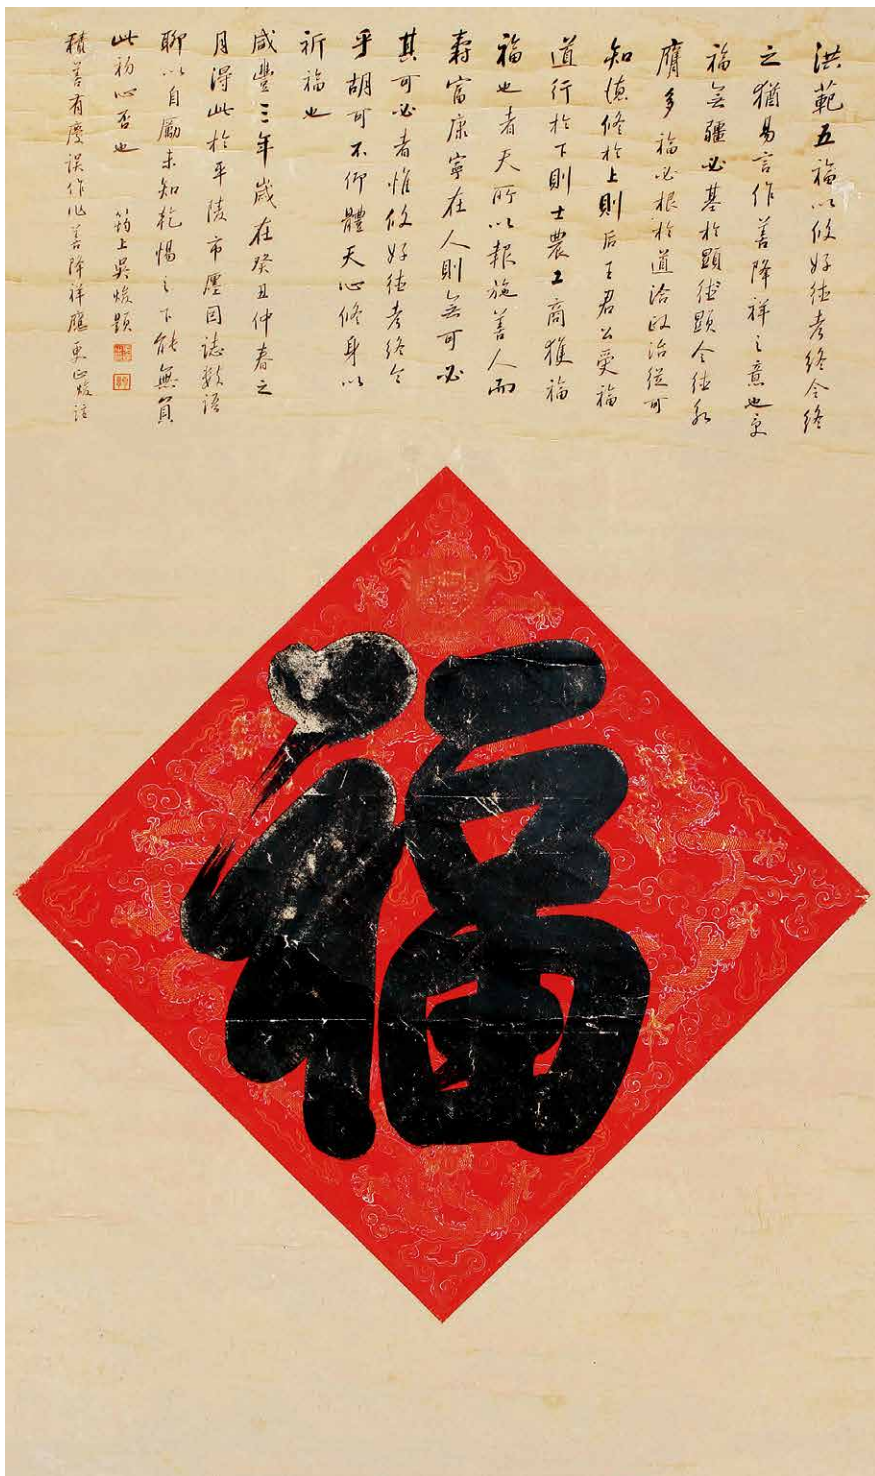 洪範五福以攸好德考終命終
之猶易言作善降祥之意也受
福無疆必基於顯德顯令德永
膺多福必根於道洽政治從可
知德修於上則后王君公受福
道行於下則士農工商獲福
福也者天所以報施善人而
壽富康寧在人則無可必
其可必者惟攸好德考終命
乎胡可不仰體天心修身以
祈福也
咸豐三年歲在癸丑仲春之
月得此於平陵市廛因誌數語
聊以自勵未知乾惕之下能無負
此初心否也 筠上吳焌題
積善有慶誤作作善降祥應更正焌註
福